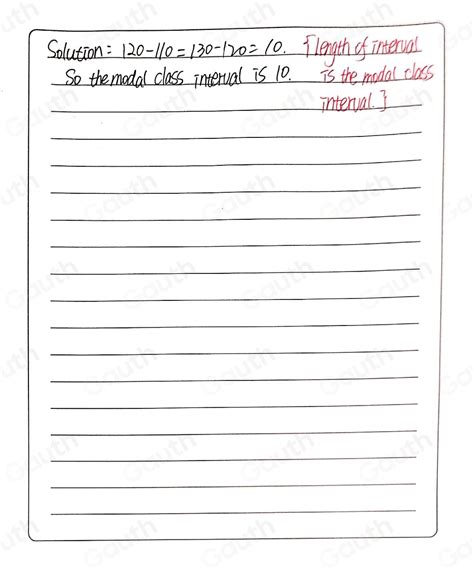 Solution: 120-110=130-120=10. [length of interval
So the modal class interval is 10. is the modal class
interval.]
Gauth